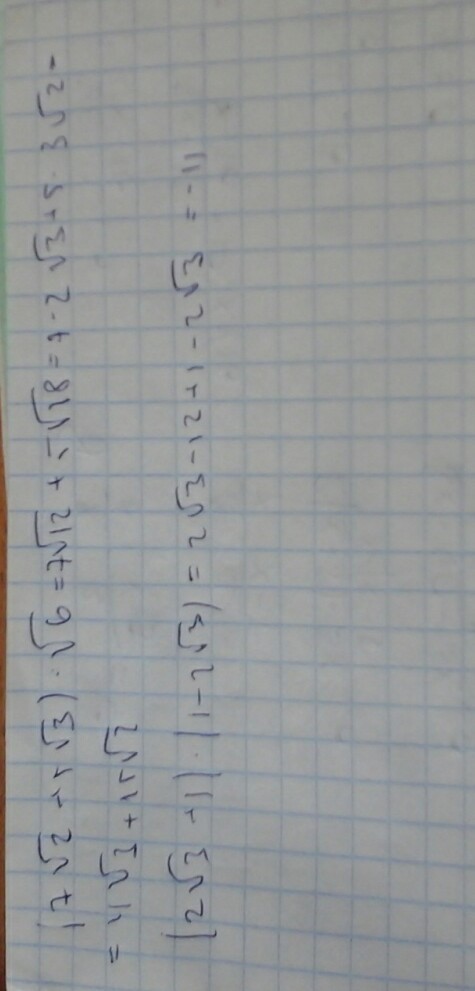 (7√2 + 5√3) · √6 = 7√12 + 5√18 = 7 · 2√3 + 5 · 3√2 =
= 14√3 + 15√2
(2√3 + 1) · (1 - 2√3) = 2√3 - 12 + 1 - 2√3 = -11